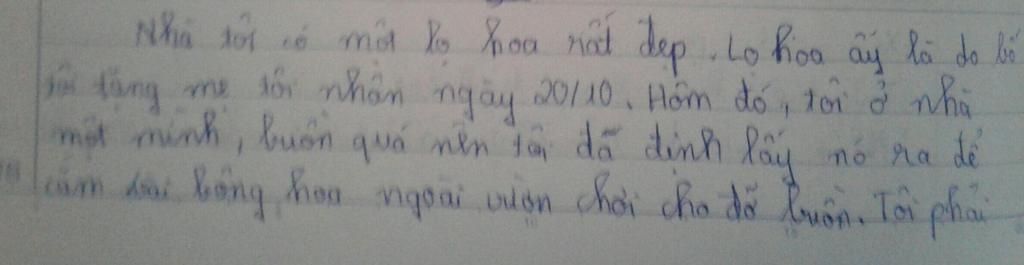 Nhà tôi có một lọ hoa rất đẹp. Lọ hoa ấy là do bố
tôi tặng mẹ tôi nhân ngày 20/10. Hôm đó, tôi ở nhà
một mình, buồn quá nên tôi đã định lấy nó ra để
cắm vài bông hoa ngoài vườn chơi cho đỡ buồn. Tôi phải